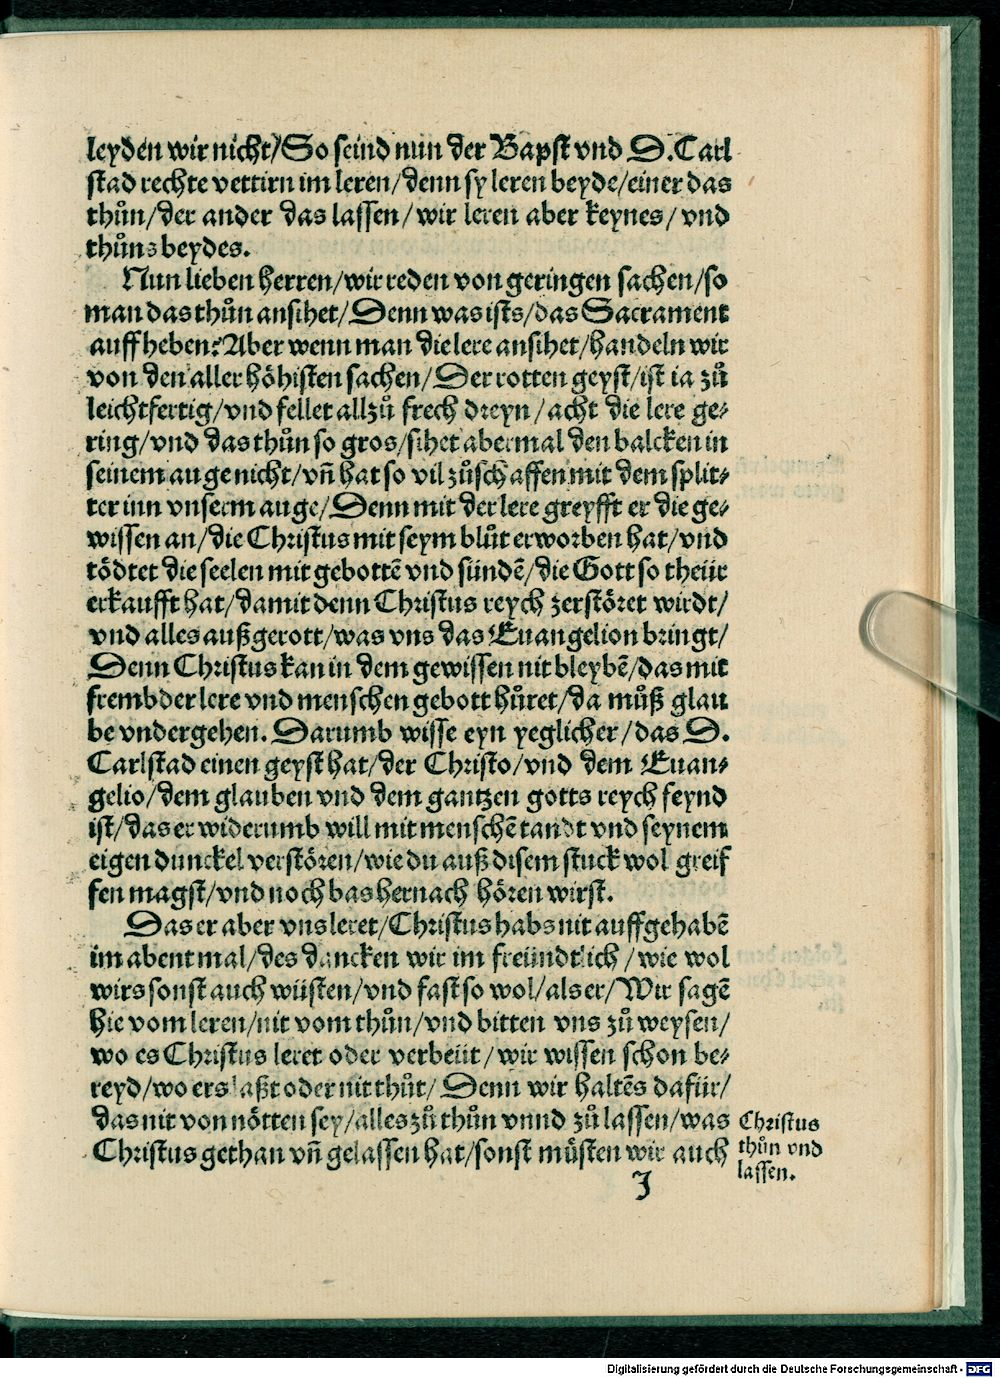 leyden wir nicht/So seind nun der Bapst vnd D.Carl
stad rechte vettirn im leren/denn sy leren beyde/einer das
thůn/der ander das lassen/wir leren aber keynes/vnd
thůns beydes.
Nun lieben herren/wir reden von geringen sachen/so
man das thůn ansihet/Denn was ists/das Sacrament
auffheben? Aber wenn man die lere ansihet/handeln wir
von den aller höhisten sachen/Der rotten geyst/ist ia zů
leichtfertig/vnd fellet allzů frech dreyn/acht die lere ge⸗
ring/vnd das thůn so gros/sihet abermal den balcken in
seinem auge nicht/vñ hat so vil zů schaffen mit dem split⸗
ter inn vnserm auge/Denn mit der lere greyfft er die ge⸗
wissen an/die Christus mit seym blůt erworben hat/vnd
tödtet die seelen mit gebottē vnd sündē/die Gott so theür
erkaufft hat/damit denn Christus reych zerstöret wirdt/
vnd alles außgerott/was vns das Euangelion bringt/
Denn Christus kan in dem gewissen nit bleybē/das mit
frembder lere vnd menschen gebott hůret/da můß glau
be vndergehen. Darumb wisse eyn yeglicher/das D.
Carlstad einen geyst hat/der Christo/vnd dem Euan⸗
gelio/dem glauben vnd dem gantzen gotts reych feynd
ist/das er widerumb will mit menschē tandt vnd seynem
eigen dunckel verstören/wie du auß disem stuck wol greif
fen magst/vnd noch bas hernach hören wirst.
Das er aber vns leret/Christus habs nit auffgehabē
im abentmal/des dancken wir im freündtlich/wie wol
wirs sonst auch wüsten/vnd fast so wol/als er/Wir sagē
hie vom leren/nit vom thůn/vnd bitten vns zů weysen/
wo es Christus leret oder verbeüt/wir wissen schon be⸗
reyd/wo ers laßt oder nit thůt/Denn wir haltēs dafür/
das nit von nötten sey/alles zů thůn vnnd zů lassen/was
Christus gethan vñ gelassen hat/sonst müsten wir auch
Christus
thůn vnd
lassen.
J
Digitalisierung gefördert durch die Deutsche Forschungsgemeinschaft - DFG